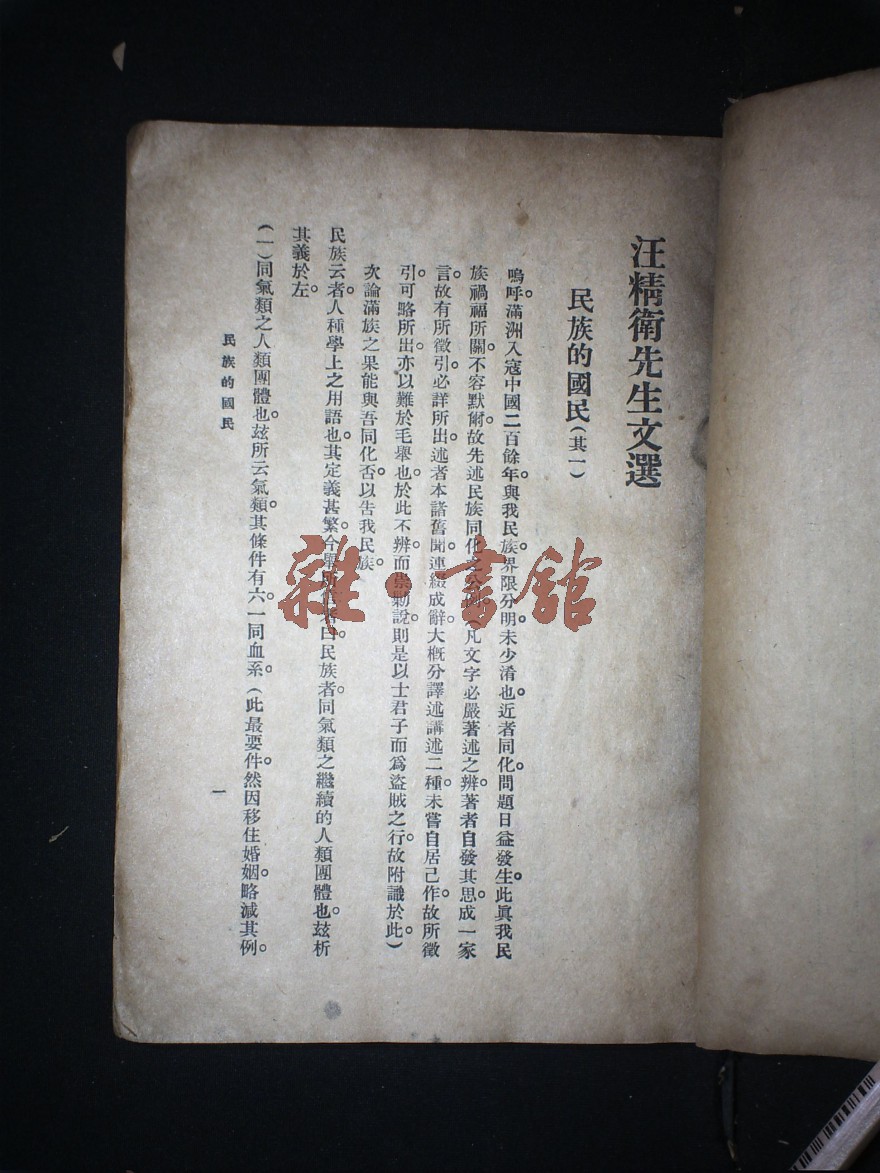 汪精衛先生文選
民族的國民(其一)
嗚呼。滿洲入寇中國二百餘年。與我民族界限分明。未少淆也。近者同化問題日益發生。此眞我民
族禍福所關。不容默爾。故先述民族同化之公例。(凡文字必嚴著述之辨。著者自發其思。成一家
言。故有所徵引。必詳所出。述者本諸舊聞。連綴成辭。大概分譯述講述二種。未嘗自居己作。故所徵
引。可略所出。亦以難於毛舉也。於此不辨。而崇勦說。則是以士君子而爲盜賊之行。故附識於此。)
次論滿族之果能與吾同化否。以告我民族。
民族云者。人種學上之用語也。其定義甚繁。今舉所 曰。民族者。同氣類之繼續的人類團體也。玆析
其義於左。
(一)同氣類之人類團體也。玆所云氣類。其條件有六。一同血系。(此最要件。然因移住婚姻。略減其例。
民族的國民
一
雜·書館